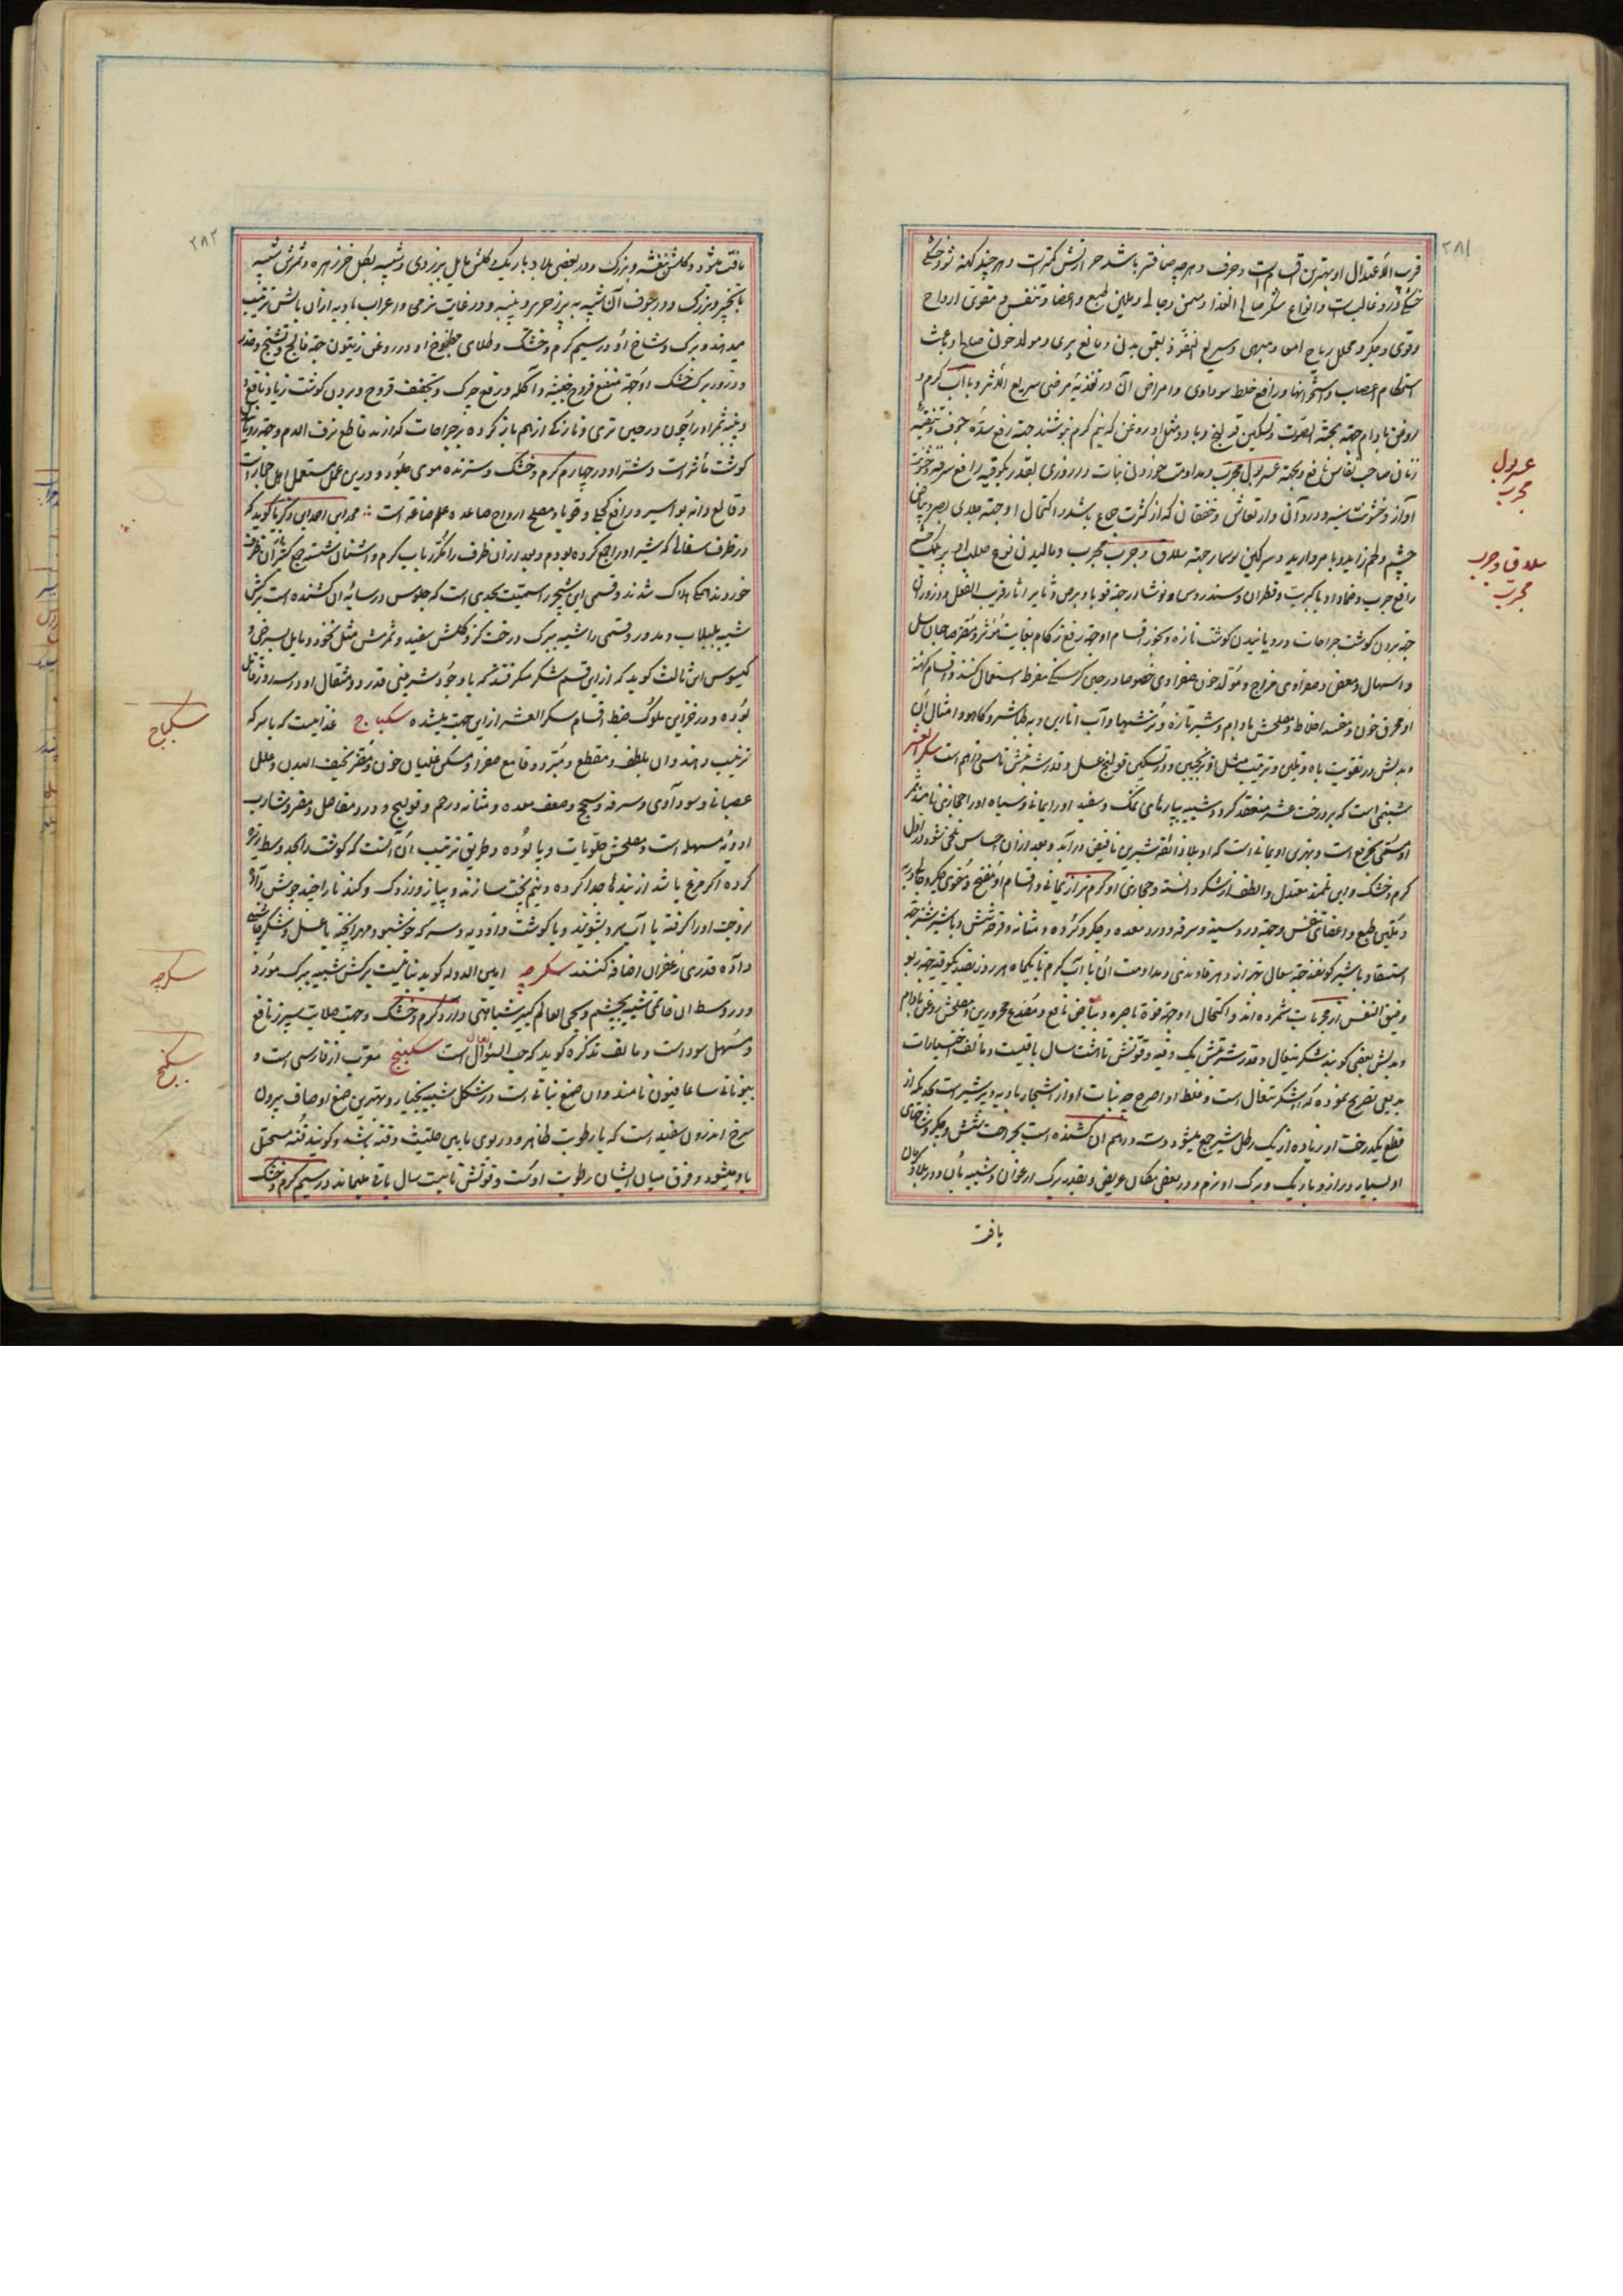 ۲۸۱
قریب الاعتدال او بهترین اقسام است و حرف و هرچه صافتر باشد حرارتش کمتر است و هرچند کهنه شود خشکی
خشکی درو غالب است و انواع شکر صالح الغذا و مسمن و جالی و ملین طبع و اعضا و تنفس و مقوی ارواح
وقوی و جگر و محلل ریاح امعا و مبهی و سریع النفوذ بعمق بدن و مانع پیری و مولد خون صالح و باعث
استحکام اعصاب و استخوانها و رافع خلط سوداوی و امراض آن در تغذیه مرضی سریع الاثر و با آب گرم و
روغن بادام جهته بحته الصوت و تسکین قولنج و با دو مثل او روغن که نیم گرم بنوشند جهته رفع سده جوف و تنقیه
زنان صاحب نفاس نافع و بجهته عسر بول مجرب و مداومت خوردن نبات در روزی بقدر یکوقیه رافع سرفه و خشونت
آواز و خشونت سینه و درد آن و ارتعاش و خفقان که از کثرت جماع باشد و اکتحال او جهته جلای بصر و بیاض
چشم و لحم زاید و با مروارید و سرکین سوسمار جهته سلاق و جرب مجرب و مالیدن نوع صلب او بر پلک چشم
رافع جرب و ضماد او با کبریت و قطران و سندروس و نوشادر جهته قوبا و برص و تأثیر آثار قریب الفعل و ذرور آن
جهته بردن گوشت جراحات و رویانیدن گوشت تازه و بخور اقسام او جهته رفع زکام بغایت مؤثر و مضر صاحبان سل
و اسهال و معطش و صفراوی مزاج و مولد خون صفراوی خصوصا در حین گرسنگی مفرط استعمال کنند و اقسام کهنه
او محرق خون و مفسد اخلاط و مصلحش بادام و شیر تازه و ترشیها و آب انارین و به طباشیر و کاهو و امثال آن
و بدلش در تقویت باه و تلیین و ترتیب مثل او ترنجبین و در تسکین قولنج عسل و قدر شربتش تا سی درهم است سکر العشر
شبنمی است که بر درخت عشر منعقد گردد شبیه بپارهای نمک و سفید او را یمانی و سیاه او را حجازی نامند
گرم و خشک و ابن تلمیذ معتدل و الطف از شکر دانسته و حجازی او گرم تر از یمانی و اقسام او مفتح و مقوی جگر و جالی
و تلیین طبع و اعضای تنفس و جهته درد سینه و سرفه و درد معده و جگر و گرده و مثانه و قرحه شش و با شیر شتر جهته
استسقا و با شیر گوسفند جهته سعال بهتر از و هر قاوندی و مداومت آن با آب گرم تا یکماه هر روز بقدر یکوقیه جهته ربو
وضیق النفس از مجربات شمرده اند و اکتحال او جهته قوة باصره و بیاض نافع و مصدع محرورین و مصلحش روغن بادام
و بدلش بعضی گویند شکر تیغال و قدر شربتش یک وقیه و قوتش تا هشت سال باقیست و مؤلف اختیارات
بدیعی تصریح نموده که شکر تیغال است و غلط او اصرح چه نبات او از اشجار بادیه و پر شیر است بحدیکه از
قطع یکدرخت او زیاده از یک رطل شیر جمع میشود و دو درهم آن کشنده است
او بسیار دراز و باریک و برک او نرم و در بعضی مکان عریض و بقدر برک ارغوان و شبیه بآن و در بلاد
یافت
عسر بول
مجرب
سلاق و جرب
مجرب
۲۸۲
یافت میشود و گلش بنفشه و بزرک و در بعضی بلاد باریک و گلش مایل بزردی و شبیه بگل خرزهره و ثمرش شبیه
بانجیر و بزرک و در جوف آن شبیه به بزر حریر و پنبه و در غایت نرمی و اعراب بادیه از آن بالش ترتیب
میدهند و برک و شاخ او در سیم گرم و خشک و طلای مطبوخ او در روغن زیتون جهته فالج و تشنج و خدر
و ذرور برک خشک او جهته منع قروح خبیثه و آکله و رفع چرک و تجفف قروح و بردن گوشت زیاد نافع
و پنبه ثمر او را چون در حین تری و تازکی از هم باز کرده بر جراحات گذارند قاطع نزف الدم و جهته رویانیدن
گوشت مؤثر است و شیر او در چهارم گرم و خشک و سترنده موی جلود و درین عمل مستعمل اهل حجاز است
و قالع دانه بواسیر و رافع کچلی و قوبا و مصلح ارواح صاعده علم صناعه است محمد ابن احمد ابن ذکریا گوید که
در ظرف سفالی که شیر او را جمع کرده بودم و بعد از آن ظرف را مکرر بآب گرم و اشنان شسته جمع کثیر از آن ظرف
خوردند همگی هلاک شدند و قسمی ازین شجر را سمیت بحدی است که جلوس در سایه آن کشنده است برکش
شبیه بلبلاب و مدور و قسمی را شبیه ببرک درخت گز و گلش سفید و ثمرش مثل نخود و مایل بسرخی و
کیسوس ابن ثالث گوید که از این قسم شکر میگرفتند که با وجود شیرینی قدر دو مثقال او در سه روز قاتل
بوده و در خزاین ملوک ضبط اقسام سکر العشر ازین جهت میشده سکباج غذائیست که با سرکه
ترتیب دهند و آن ملطف و مقطع و مبرد و قامع صفرا و مسکن غلیان خون و مضر نحیف البدن و علل
عصبانی و سوداوی و سرفه و سحج و ضعف معده و مثانه و رحم و قولنج و درد مفاصل و مضر شارب
ادویه مسهله است و مصلحش حلویات و پالوده و طریق ترتیب آن آنست که گوشت را بحد وسط ریزه
کرده اگر مرغ باشد از بندها جدا کرده و نیم پخت سازند و پیاز و زردک و گندنا را چند جوش داده
بزوجت او را گرفته با آب سرد بشویند و با گوشت و ادویه و سرکه خوشبو و مهرا پخته با عسل و شکر چاشنی
داده قدری زعفران اضافه کنند سکرجه امین الدوله گوید نباتیست برکش شبیه ببرک مورد
و در وسط آن قائمی شبیه بچشم و بحی العالم کبیر شباهتی دارد گرم و خشک و جهت صلابت سپرز نافع
و مسهل سوداست و مؤلف تذکره گوید که حب السؤال است سکبینج معرب از فارسی است و
بیونانی ساغافیون نامند و آن صمغ نباتی است در شکل شبیه بخیار و بهترین صمغ او صاف بیرون
سرخ اندرون سفید است که با رطوبت ظاهر و در بوی مابین حلتیث و قنه باشد و گویند قنه مستحیل
باو میشود و فرق میان ایشان رطوبت اوست و قوتش تا بیست سال باقی میماند در سیم گرم و خشک
سکباج
سکرجه
سکبینج